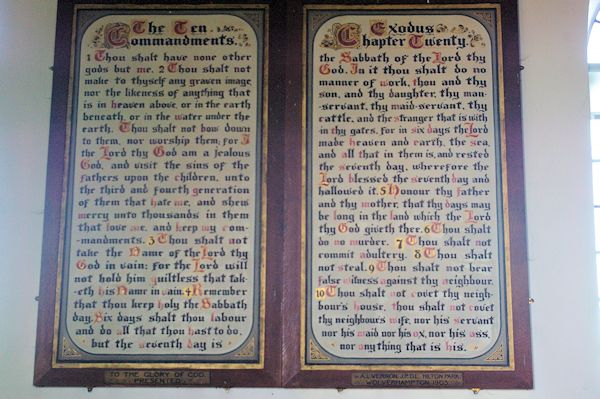 The Ten
Commandments.
1 Thou shalt have none other
gods but me. 2 Thou shalt not
make to thyself any graven image
nor the likeness of anything that
is in heaven above, or in the earth
beneath, or in the water under the
earth. Thou shalt not bow down
to them, nor worship them: for I
the Lord thy God am a jealous
God, and visit the sins of the
fathers upon the children, unto
the third and fourth generation
of them that hate me, and shew
mercy unto thousands in them
that love me, and keep my com-
-mandments. 3 Thou shalt not
take the Name of the Lord thy
God in vain: for the Lord will
not hold him guiltless that tak-
eth his Name in vain. 4 Remember
that thou keep holy the Sabbath
day. Six days shalt thou labour
and do all that thou hast to do,
but the seventh day is
TO THE GLORY OF GOD,
PRESENTED
Exodus
Chapter Twenty.
the Sabbath of the Lord thy
God. In it thou shalt do no
manner of work, thou and thy
son, and thy daughter, thy man-
-servant, thy maid-servant, thy
cattle, and the stranger that is with
in thy gates, for in six days the Lord
made heaven and earth, the sea,
and all that in them is, and rested
the seventh day, wherefore the
Lord blessed the seventh day and
hallowed it. 5 Honour thy father
and thy mother, that thy days may
be long in the land which the Lord
thy God giveth thee. 6 Thou shalt
do no murder. 7 Thou shalt not
commit adultery. 8 Thou shalt
not steal. 9 Thou shalt not bear
false witness against thy neighbour.
10 Thou shalt not covet thy neigh-
bour's house, thou shalt not covet
thy neighbour's wife, nor his servant
nor his maid nor his ox, nor his ass,
nor anything that is his.
A.L. VERNON, J.P. D.L. HILTON PARK,
WOLVERHAMPTON, 1903